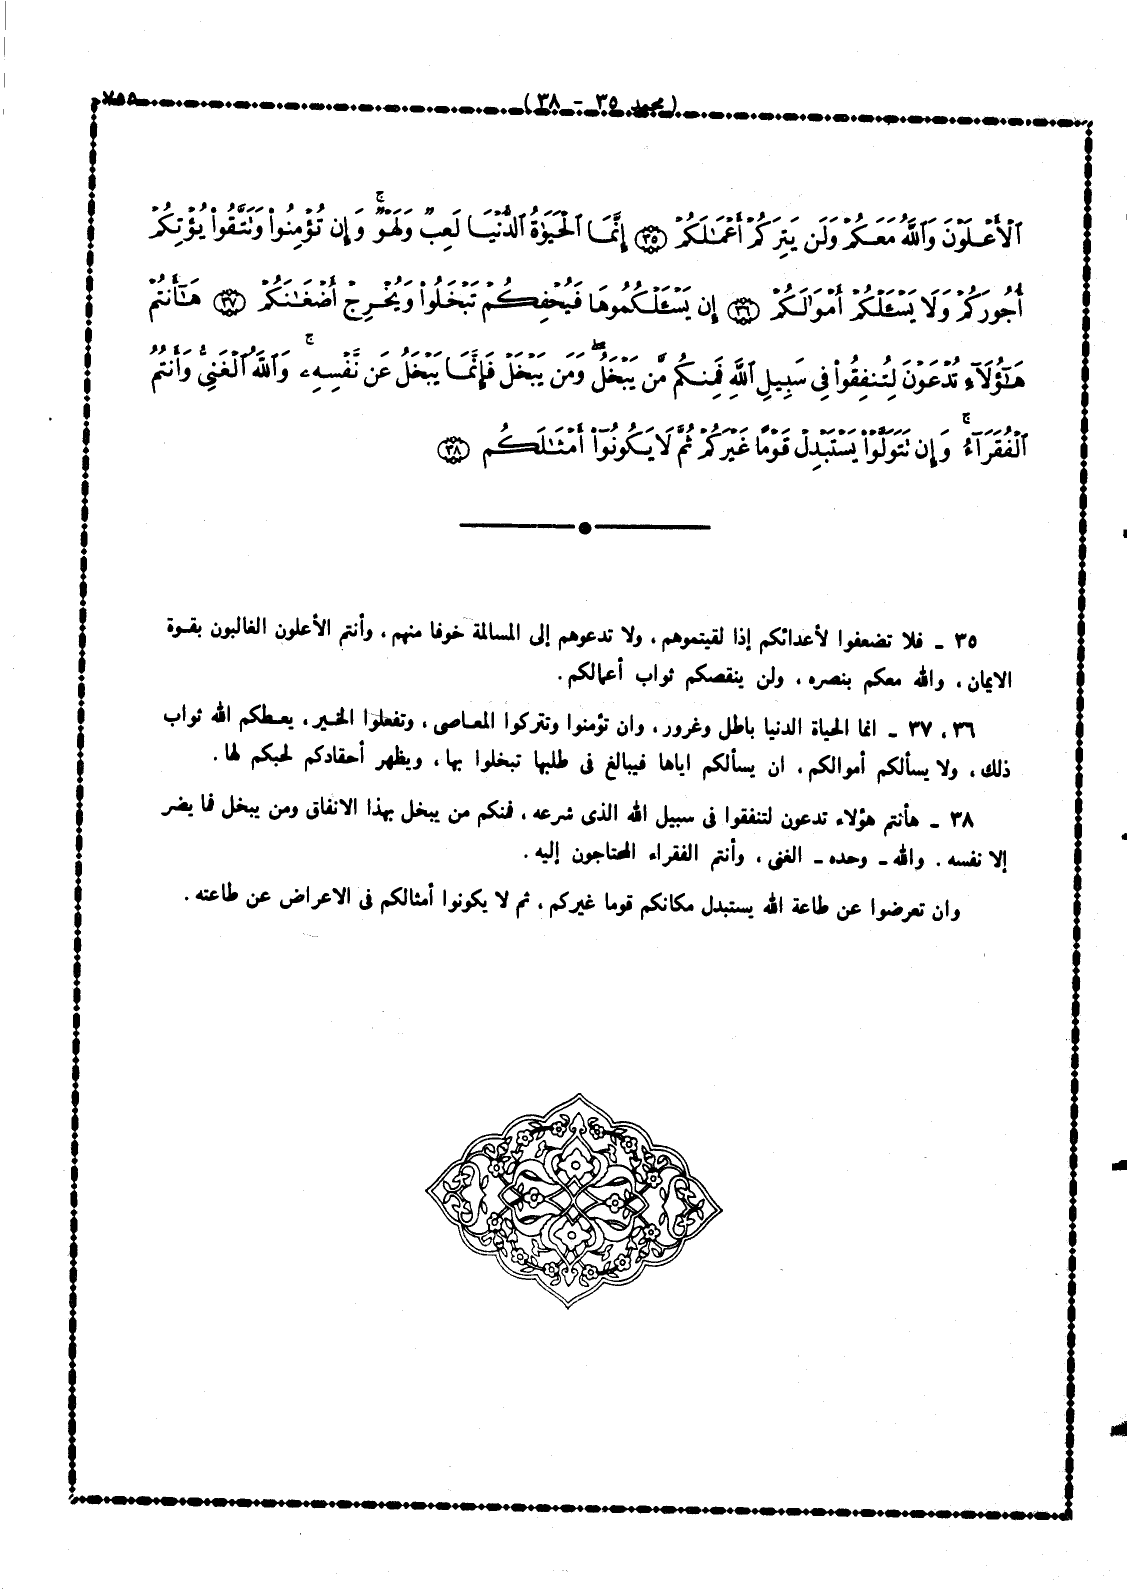 (محمد ٣٥ - ٣٨)
٧٥٥
ٱلْأَعْلَوْنَ وَٱللَّهُ مَعَكُمْ وَلَن يَتِرَكُمْ أَعْمَـٰلَكُمْ ٣٥ إِنَّمَا ٱلْحَيَوٰةُ ٱلدُّنْيَا لَعِبٌ وَلَهْوٌ ۚ وَإِن تُؤْمِنُوا۟ وَتَتَّقُوا۟ يُؤْتِكُمْ
أُجُورَكُمْ وَلَا يَسْـَٔلْكُمْ أَمْوَٰلَكُمْ ٣٦ إِن يَسْـَٔلْكُمُوهَا فَيُحْفِكُمْ تَبْخَلُوا۟ وَيُخْرِجْ أَضْغَـٰنَكُمْ ٣٧ هَـٰٓأَنتُمْ
هَـٰٓؤُلَآءِ تُدْعَوْنَ لِتُنفِقُوا۟ فِى سَبِيلِ ٱللَّهِ فَمِنكُم مَّن يَبْخَلُ ۖ وَمَن يَبْخَلْ فَإِنَّمَا يَبْخَلُ عَن نَّفْسِهِۦ ۚ وَٱللَّهُ ٱلْغَنِىُّ وَأَنتُمُ
ٱلْفُقَرَآءُ ۚ وَإِن تَتَوَلَّوْا۟ يَسْتَبْدِلْ قَوْمًا غَيْرَكُمْ ثُمَّ لَا يَكُونُوٓا۟ أَمْثَـٰلَكُم ٣٨
٣٥ ـ فلا تضعفوا لأعدائكم إذا لقيتموهم، ولا تدعوهم إلى المسالمة خوفا منهم، وأنتم الأعلون الغالبون بقوة
الايمان، والله معكم بنصره، ولن ينقصكم ثواب أعمالكم.
٣٦، ٣٧ ـ انما الحياة الدنيا باطل وغرور، وان تؤمنوا وتتركوا المعاصى، وتفعلوا الخير، يعطكم الله ثواب
ذلك، ولا يسألكم أموالكم، ان يسألكم اياها فيبالغ فى طلبها تبخلوا بها، ويظهر أحقادكم لحبكم لها.
٣٨ ـ هأنتم هؤلاء تدعون لتنفقوا فى سبيل الله الذى شرعه، فمنكم من يبخل بهذا الانفاق ومن يبخل فما يضر
إلا نفسه. والله ـ وحده ـ الغنى، وأنتم الفقراء المحتاجون إليه.
وان تعرضوا عن طاعة الله يستبدل مكانكم قوما غيركم، ثم لا يكونوا أمثالكم فى الاعراض عن طاعته.